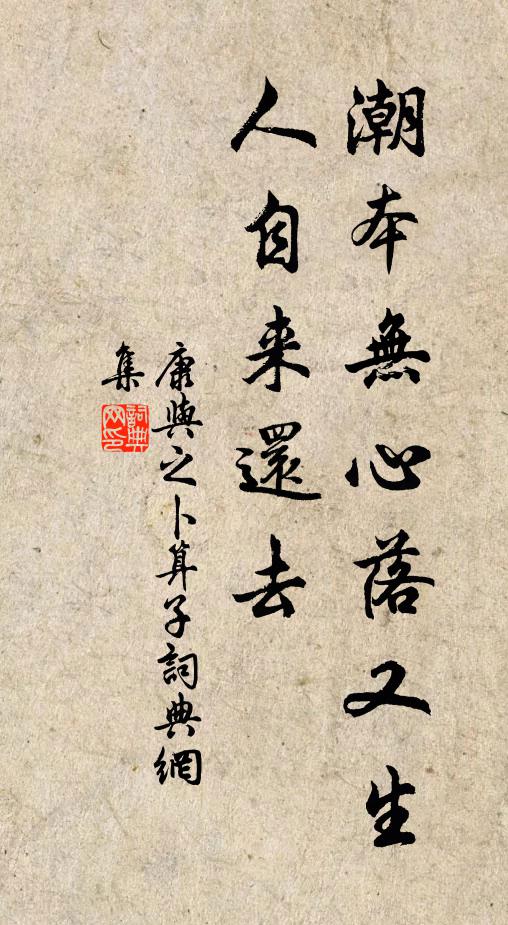 潮本無心落又生
人自来還去
康與之卜算子詞典網
集
詞典網印